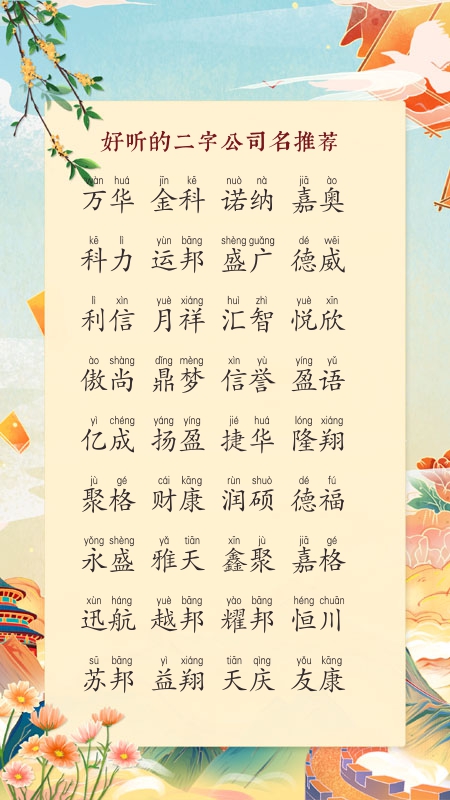 好听的二字公司名推荐
wàn huá jīn kē nuò nà jiā ào
万华 金科 诺纳 嘉奥
kē lì yùn bāng shèng guǎng dé wēi
科力 运邦 盛广 德威
lì xìn yuè xiáng huì zhì yuè xīn
利信 月祥 汇智 悦欣
ào shàng dǐng mèng xìn yù yíng yǔ
傲尚 鼎梦 信誉 盈语
yì chéng yáng yíng jié huá lóng xiáng
亿成 扬盈 捷华 隆翔
jù gé cái kāng rùn shuò dé fú
聚格 财康 润硕 德福
yǒng shèng yǎ tiān xīn jù jiā gé
永盛 雅天 鑫聚 嘉格
xùn háng yuè bāng yào bāng héng chuān
迅航 越邦 耀邦 恒川
sū bāng yì xiáng tiān qìng yǒu kāng
苏邦 益翔 天庆 友康